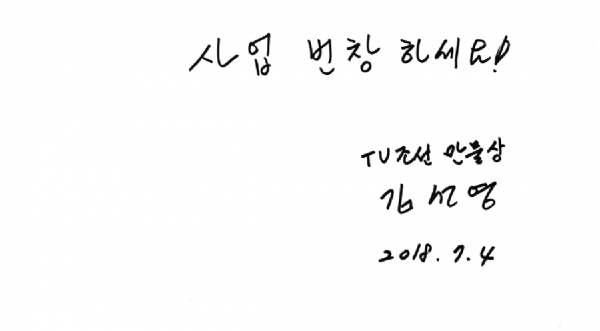 사업 번창 하세요!
TV조선 만물상
김선영
2018. 7. 4